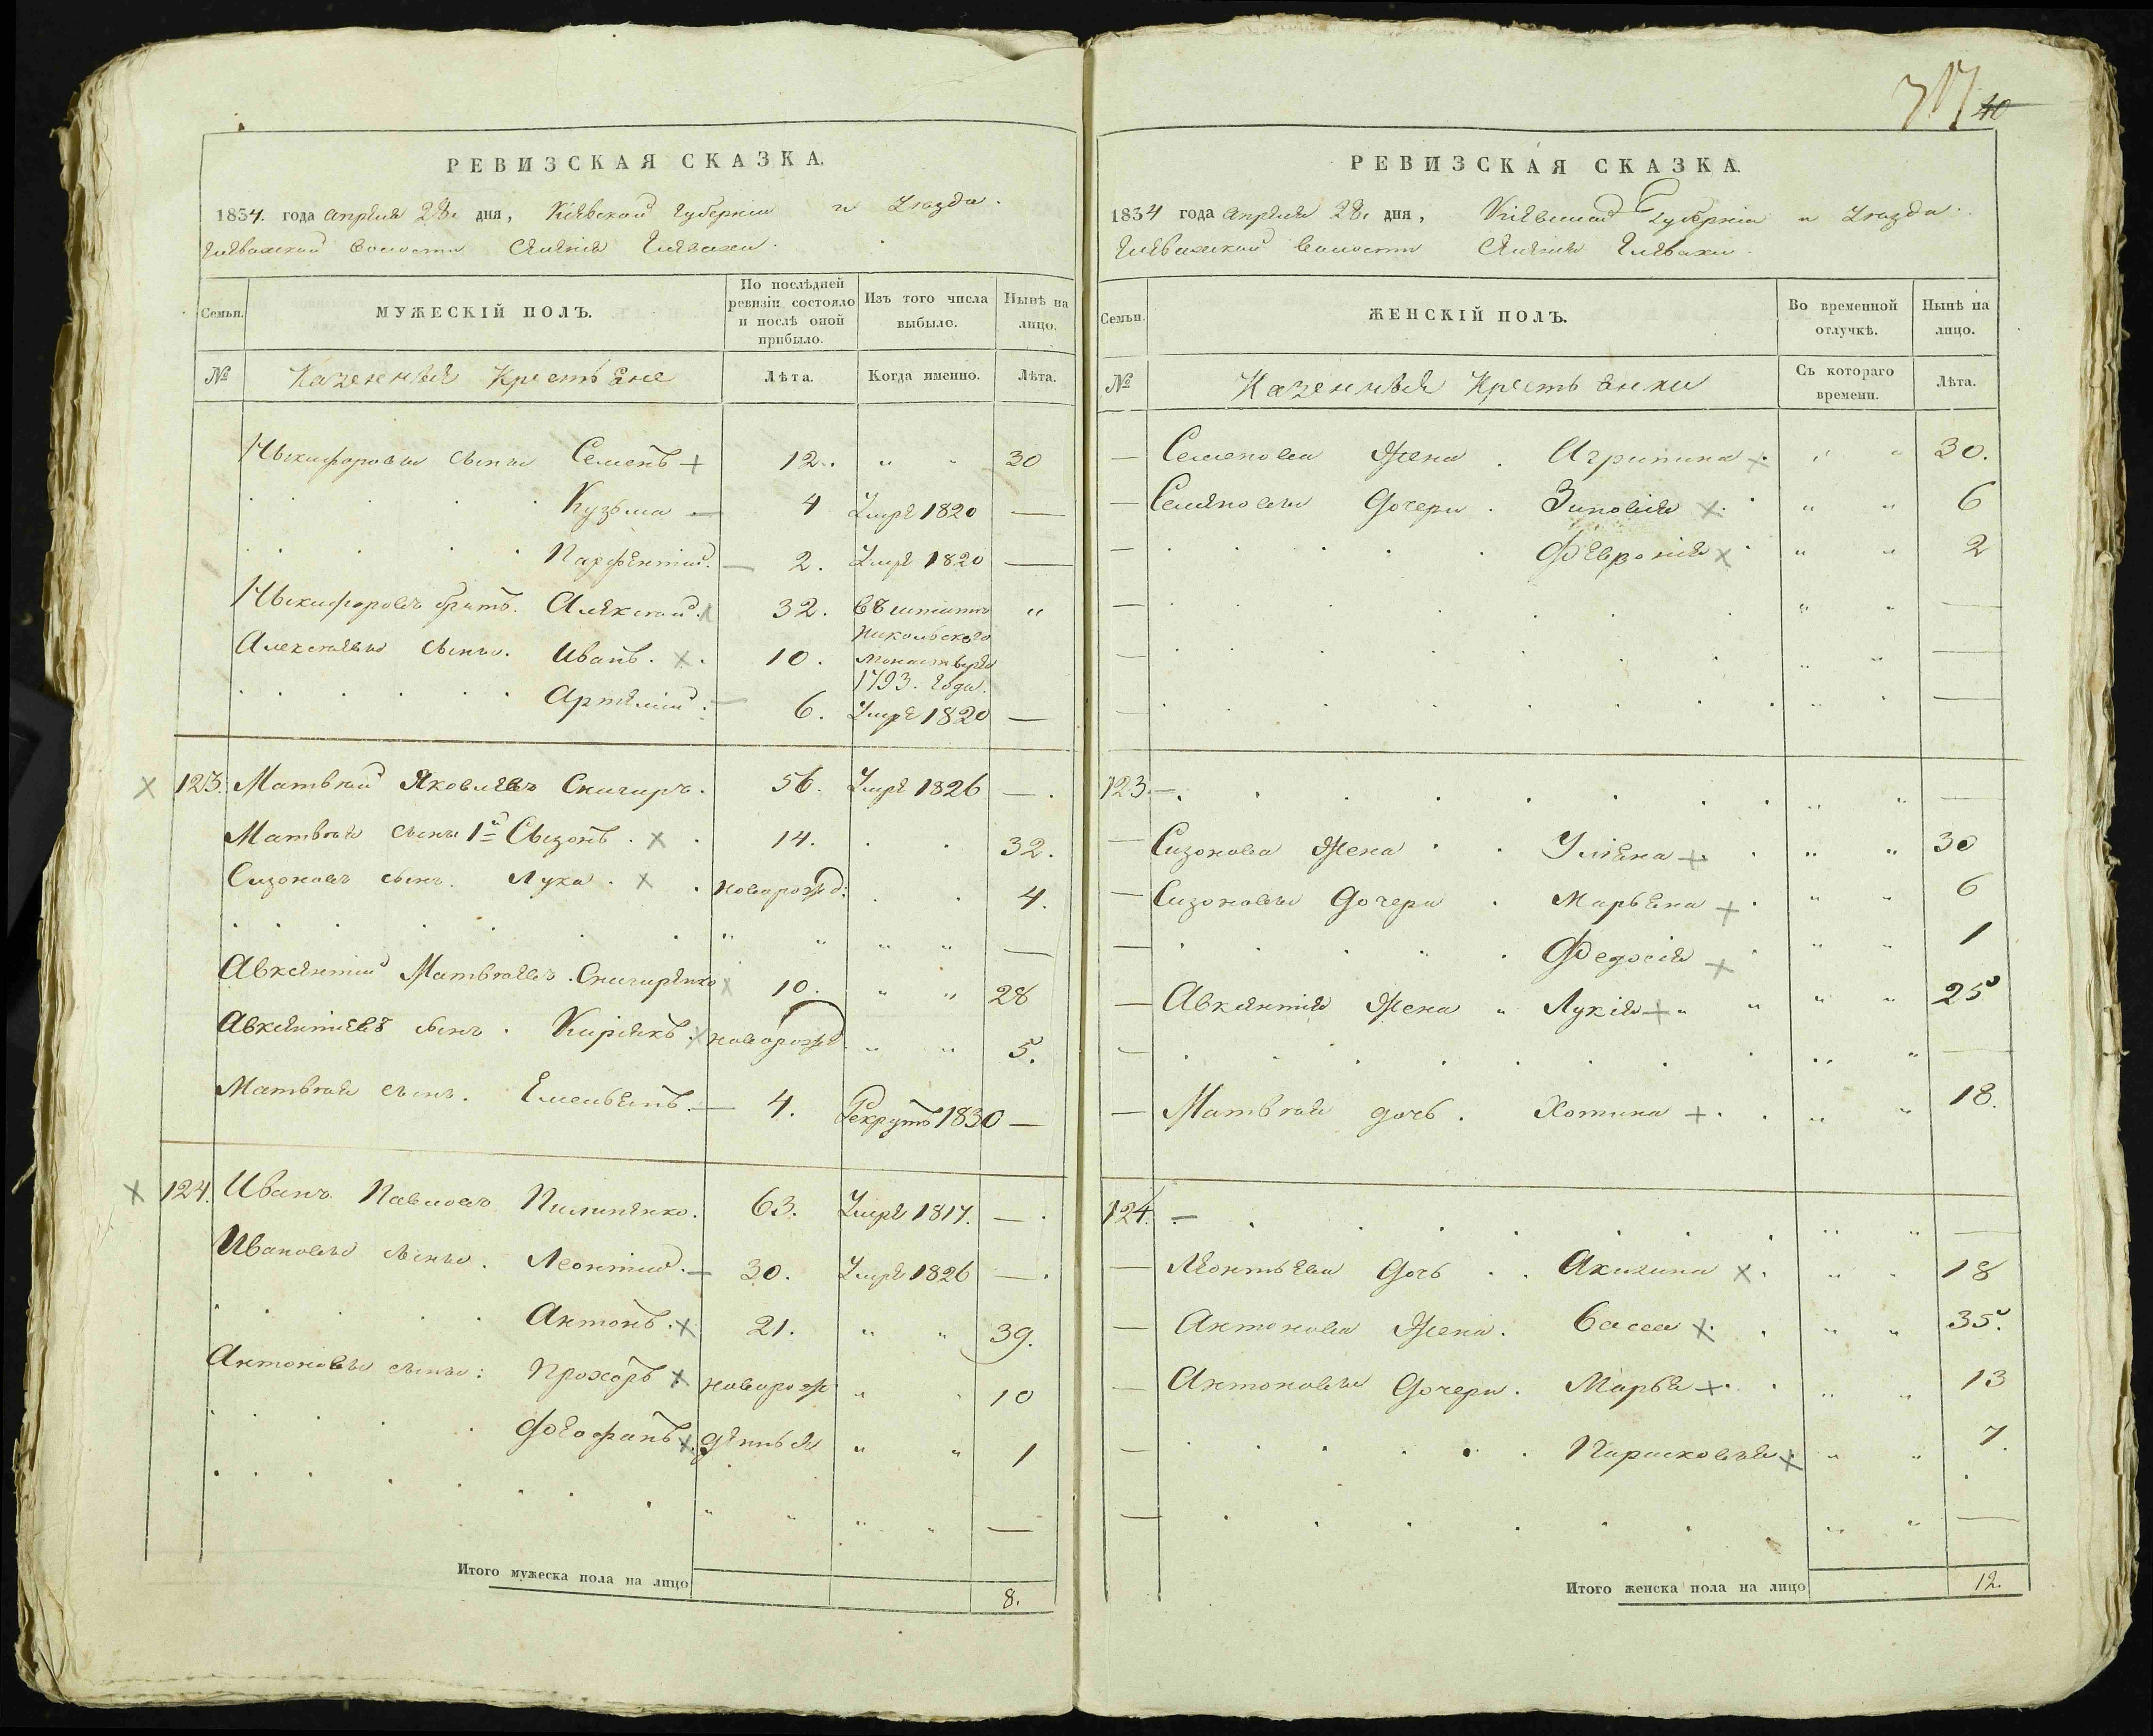 717 40
РЕВИЗСКАЯ СКАЗКА.
1834. года апреля 28. дня, Кіевской губерніи и Уезда.
Глевахской волости Селенія Глевахи.
Семьи.
МУЖЕСКІЙ ПОЛЪ.
По послѣдней ревизіи состояло и послѣ оной прибыло.
Изъ того числа выбыло.
Нынѣ на лицо.
№
Казенные Крестьяне
Лѣта.
Когда именно.
Лѣта.
Семенъ 12. " " 30
Кузьма 4 Умре 1820 —
Парфентий. 2. Умре 1820 —
братъ. Алексей. 32. въ "
Никольского
Алексеевы сыны. Иванъ. 10. монастыря
1793. года.
Артемий. 6. Умре 1820 —
123. Матвей Яковлевъ Снигирь. 56. Умре 1826 —.
Матвея сыны 1й Сызонъ. 14. . . 32.
Сизоновъ сынъ. Лука. новорожд: . . 4.
" " " " —
Авксентий Матвеевъ. Снигиренко 10. " " 28
Авксентиевъ сынъ. Киріякъ. новорожд " " 5.
Матвея сынъ. Емельянъ. — 4. Рекрутъ 1830 —
124. Иванъ Павловъ Пилипенко. 63. Умре 1817. —.
Ивановы сыны. Леонтий. — 30. Умре 1826 —.
Антонъ. 21. " " 39.
Антоновы сыны: Прохоръ новорож " " 10
Феофанъ денные " " 1
" " " " —
Итого мужеска пола на лицо 8.
РЕВИЗСКАЯ СКАЗКА.
1834 года апреля 28. дня, Кіевской Губерніи и Уезда.
Глевахской волости Селенія Глевахи.
Семьи.
ЖЕНСКІЙ ПОЛЪ.
Во временной отлучкѣ.
Нынѣ на лицо.
№
Казенные Крестьянки
Съ котораго времени.
Лѣта.
— Семенова Жена. Агрипина " " 30.
— Семеновы Дочери. Зиновия " " 6
— Феврония " " 2
— " " —
— " " —
— " " —
123. — " " —
— Сизонова Жена Уліяна " " 30
— Сизоновы Дочери Марьяна " " 6
— Федосия " " 1
— Авксентия Жена " Лукия " " " " 25
— " " —
— Матвея дочь. Хотина " " 18.
124. — " " —
— Леонтьева Дочь Акилина " " 18
— Антонова Жена. Васса " " 35.
— Антоновы Дочери. Марья " " 13
— Парасковья " " 7.
— " " —
Итого женска пола на лицо 12.